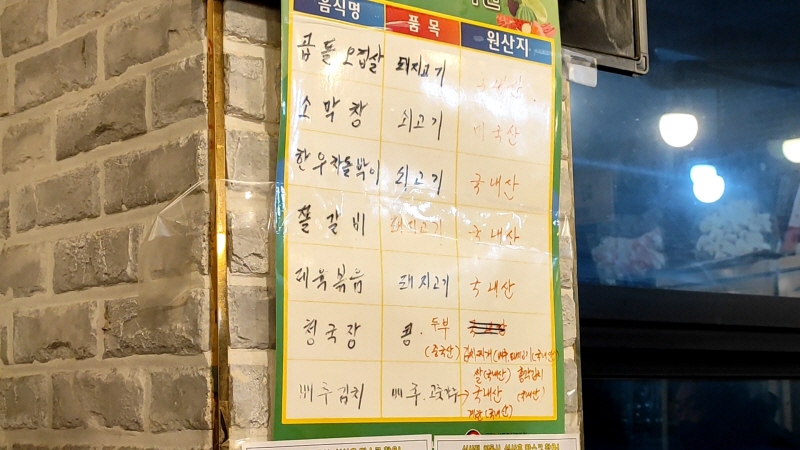 음식명 품목 원산지
곱돌오겹살 돼지고기 국내산
소막창 쇠고기 미국산
한우차돌박이 쇠고기 국내산
쫄갈비 돼지고기 국내산
제육볶음 돼지고기 국내산
청국장 콩. 두부
(중국산) 김치찌개 (배추, 돼지고기 (국내산)
쌀 (국내산)
배추김치 배추. → 국내산 (국내산)
계란 (국내산)